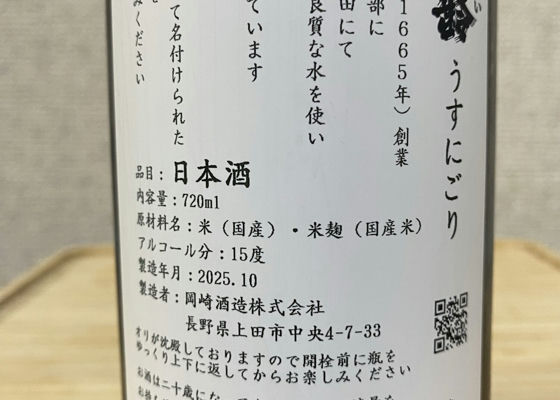 齢 うすにごり
1665年）創業
部に
田にて
良質な水を使い
ています
て名付けられた
みください
品目：日本酒
内容量：720ml
原材料名：米（国産）・米麹（国産米）
アルコール分：15度
製造年月：2025.10
製造者：岡崎酒造株式会社
長野県上田市中央4-7-33
オリが沈殿しておりますので開栓前に瓶を
ゆっくり上下に返してからお楽しみください
お酒は二十歳にな